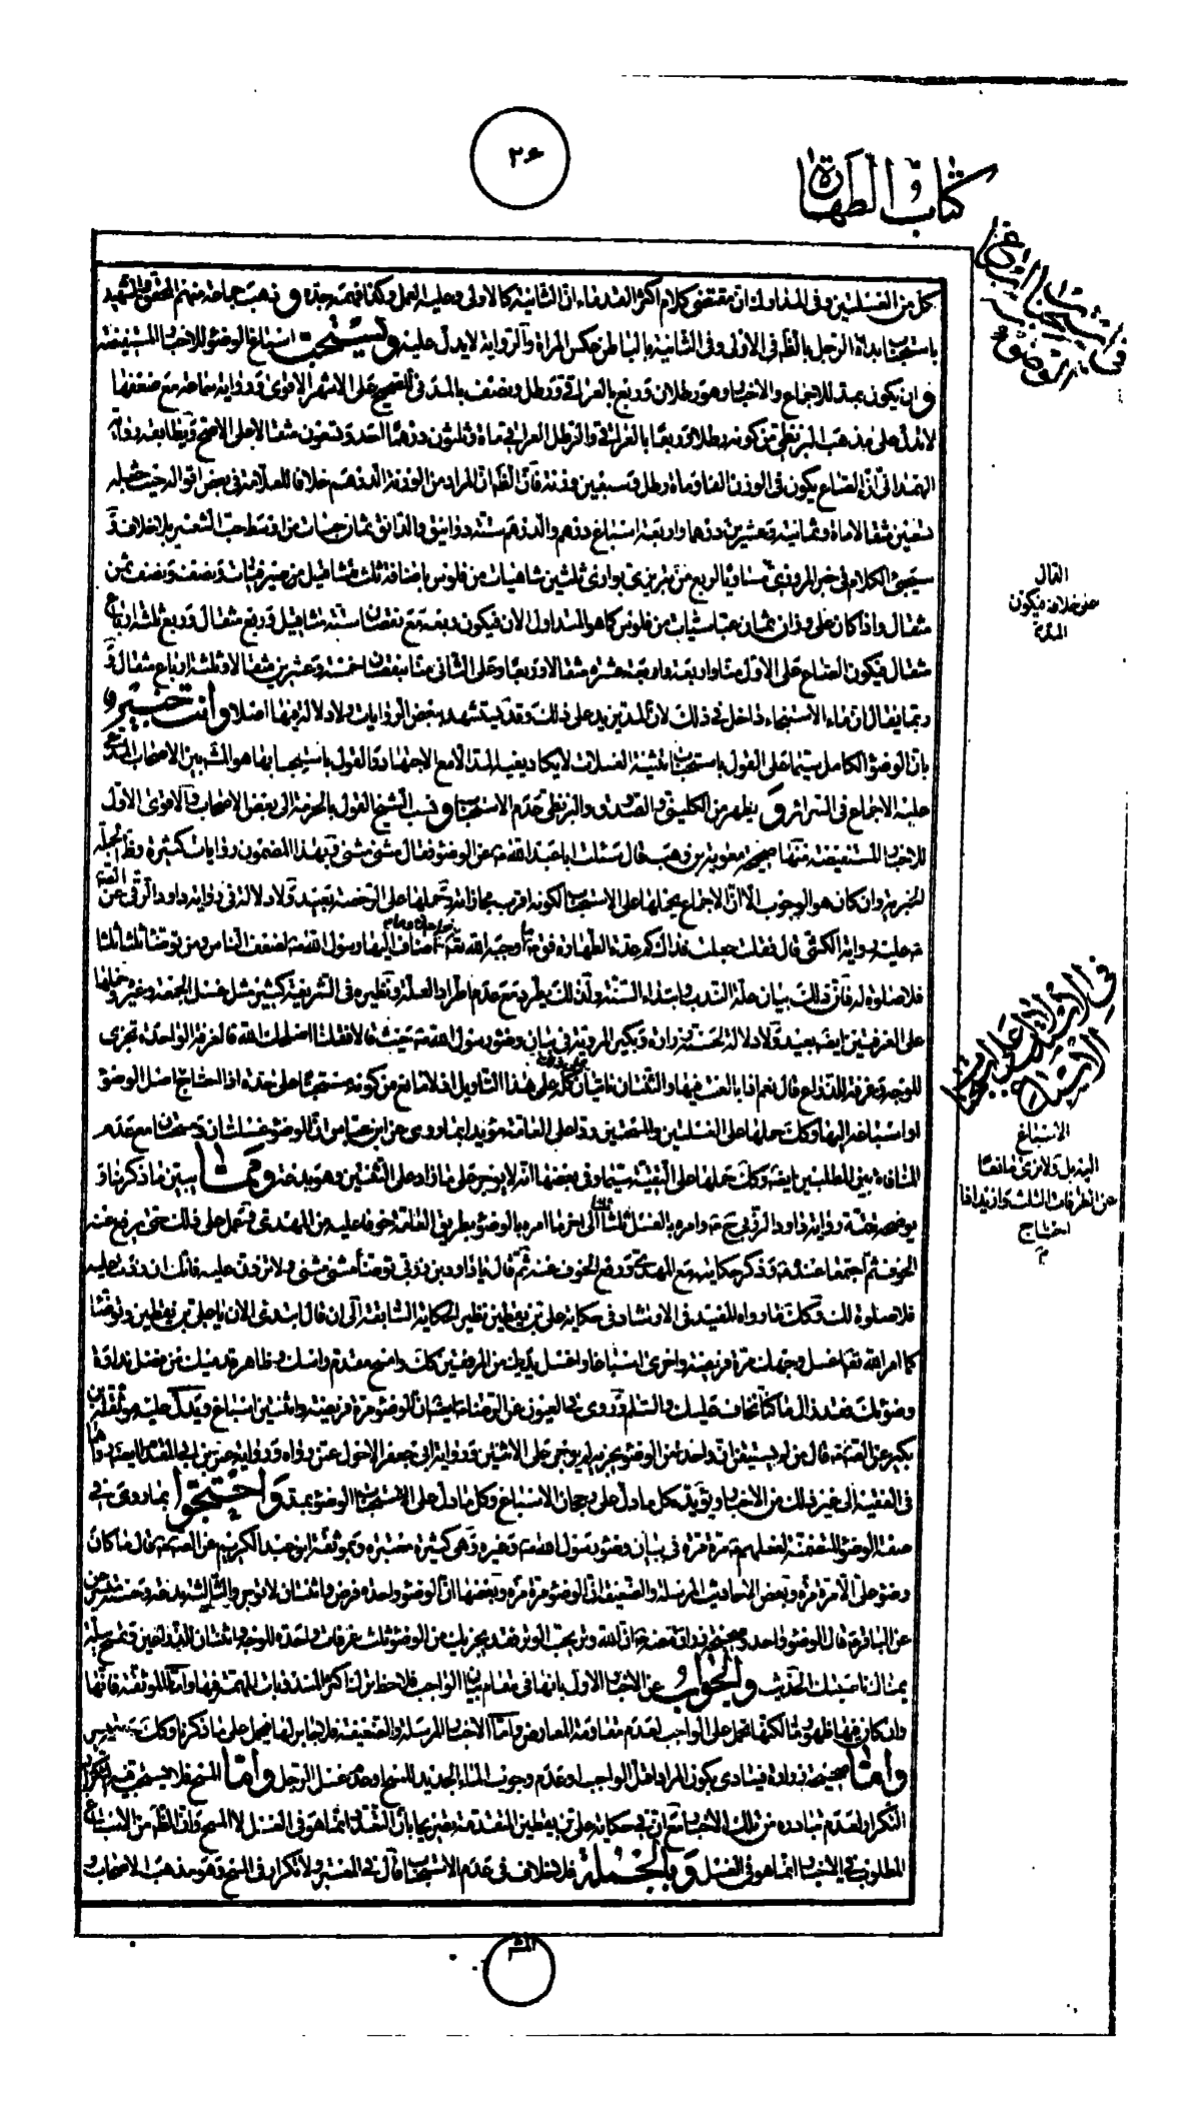 ٢۶
كتاب الطهارة
في استحباب اسباغ الوضوء
كل من الغسلتين وفى المداولة ان مقتضى كلام اكثر القدماء ان الثانية كالاولى وعليه العمل وكذا فهمه جده و ذهب جماعة منهم المحقق والشهيد
باستحباب بداة الرجل بالظهر في الاولى وفى الثانية بالباطن عكس المراة والرواية لا يدل عليه ويستحب اسباغ الوضوء للاخبار المستفيضة
و ان يكون بمد للاجماع والاخبار وهو رطلان وربع بالعراقي ورطل ونصف بالمدني للصحيح على الاشهر الاقوى ورواية سماعة مع ضعفها
لا تدل على مذهب البزنطي من كونه رطلا وربعا بالعراقي والرطل العراقي مائة وثلثون درهما احد وتسعون مثقالا على الاصح ويطابقه رواية
الهمداني ان الصاع يكون في الوزن الفا ومائة رطل وسبعين وزنة فان الظ ان المراد من الوزنة الدرهم خلافا للعلامة في بعض اقواله حيث جعله
تسعين مثقالا مائة وثمانية وعشرين درهما واربعة اسباع درهم والدرهم ستة دوانيق والدانق ثمان حبات من اوسط حب الشعير بلا خلاف و
سيجئ الكلام في خبر المروزي
مثقال واذا كان على وزان ثمان عباسيات من فلوس كما هو المتداول الان فيكون ربعه مع نقصان ستة مثاقيل وربع مثقال وربع ثلثة ارباع
مثقال فيكون الصاع على الاول منا واربعة واربعة عشر مثقالا وربعا وعلى الثاني منا بنقصان خمسة وعشرين مثقالا وثلثة ارباع مثقال و
ربما يقال ان ماء الاستنجاء داخل في ذلك لان المد يزيد على ذلك وقد يستشهد ببعض الروايات ولا دلالة فيها اصلا وانت خبير
بان الوضوء الكامل سيما على القول باستحباب تثنية الغسلات لا يكاد يفيد المد الا مع الاجتهاد والقول باستحبابها هو المشهور بين الاصحاب المدعى
عليه الاجماع في السرائر و يظهر من الكليني والصدوق والبزنطي عدم الاستحباب ونسب الشيخ القول بالحرمة الى بعض الاصحاب والاقوى الاول
للاخبار المستفيضة منها صحيحة معوية بن وهب قال سئلت ابا عبد الله ع عن الوضوء فقال مثنى مثنى وبهذا المضمون روايات كثيرة وظ الجملة
الخبرية وان كان هو الوجوب الا ان الاجماع يحملها على الاستحباب لكونه اقرب مجازاته وحملها على الرخصة بعيد ولا دلالة في رواية داود الرقي عن الص
ع عليه برواية الكشي قال فقلت جعلت فداك كم عدة الطهارة فقال ما اوجبه الله فواحدة اضاف اليها رسول الله ص واحدة لضعف الناس ومن توضأ ثلثا ثلثا
فلا صلوة له فان ذلك بيان علة الندب وابتداء السنة ولذلك يطرد مع عدم اطراد العلة ونظيره في الشريعة كثير مثل غسل الجمعة وغيره وحملها
على الغرفتين ايضا بعيد ولا دلالة لحسنة زرارة وبكير المروية في بيان وضوء رسول الله ص حيث قالا فقلنا اصلحك الله فالغرفة الواحدة تجزى
للوجه وغرفة للذراع قال نعم اذا بالغت فيها والثنتان تاتيان على ذلك كله على هذا التاويل اذ لا مانع من كونه مستحبا على حدة اذا احتاج اصل الوضوء
او اسباغه اليها وكك حملها على الغسلتين والمسحتين ردا على العامة مؤيدا بما روى عن ابن عباس ان الوضوء غسلتان ومسحتان مع عدم
المنافاة بين المطلبين ايضا وكك حملها على التقية سيما وفى بعضها انه لا يوجر على ما زاد على الثنتين وهو بدعة ومما يبين ما ذكرنا و
يوضحه حقه رواية داود الرقي حيث امره بالغسل ثلثا ثلثا الى اخر ما امره بالوضوء بطريق العامة خوفا عليه من المهدى فعمل على ذلك حتى يرفع عنه
الخوف ثم اجتمعا عنده ع وذكر حكايته مع المهدى ورفع الخوف عنه ثم قال يا داود بن زربي توضأ مثنى مثنى ولا تزدن عليه فانك ان زدت عليه
فلا صلوة لك وكك ما رواه المفيد في الارشاد في حكاية علي بن يقطين نظير الحكاية السابقة الى ان قال ابتدئ الان يا علي بن يقطين وتوضأ
كما امر الله تعالى اغسل وجهك مرة فريضة واخرى اسباغا واغسل يديك من المرفقين كك وامسح مقدم راسك وظاهر قدميك من فضل نداوة
وضوئك فقد زال ما كنا نخاف عليك والسلم وروى في العيون عن الرضا ع ايضا ان الوضوء مرة فريضة واثنتين اسباغ ويدل عليه موثقة ابن
بكير عن الص ع قال من لم يستيقن ان واحدة من الوضوء يجزيه لم يوجر على الاثنتين ورواية ابي جعفر الاحول عمن رواه ورواية عمرو بن ابي المقدام المرويتان
في الفقيه الى غير ذلك من الاخبار ويؤيده كل ما دل على رجحان الاسباغ وكل ما دل على استحباب الوضوء بمد واحتجوا بما روى في
صفة الوضوء المتضمنة لفعلهم ع مرة مرة في بيان وضوء رسول الله ص وغيره وهى كثيرة معتبرة وبموثقة ابن عبد الكريم عن الص ع قال ما كان
وضوء علي ع الا مرة مرة وبعض الاحاديث المرسلة والضعيفة ان الوضوء مرة مرة وبعضها ان الوضوء واحدة فرض واثنتان لا يوجر والثالثة بدعة وحسنة ميسر
عن الباقر ع قال الوضوء واحد وصحيحة زرارة عنه ع ان الله وتر يحب الوتر فقد يجزيك من الوضوء ثلث غرفات واحدة للوجه واثنتان للذراعين وتمسح ببلة
يمناك ناصيتك الحديث والجواب عن الاخبار الاول بانها في مقام بيان الواجب فلاحظ ترك اكثر المندوبات المهمة فيها واما الموثقة فانها
وان كان فيها ظهور ما لكنها تحمل على الواجب لعدم مقاومة المعارض واما الاخبار المرسلة والضعيفة فلا جابر لها فيحمل على ما ذكرنا وكك حسنة ميسر
واما صحيحة زرارة فينادى بكون المراد اقل الواجب او عدم وجوب الماء الجديد للمسح او حق غسل الرجل واما المسح فلا يستحب فيه التكرار
التكرار لعدم تبادره من تلك الاخبار مع ان في حكاية علي بن يقطين المتقدمة تصريحا بان التعدد انما هو في الغسل لا المسح وان الظ من الاسباغ
المطلوب في الاخبار انما هو في الغسل وبالجملة فلا خلاف في عدم الاستحباب قال في المعتبر ولا تكرار في المسح وهو مذهب الاصحاب و
على خلافه فيكون
الاسباغ
احتاج
م